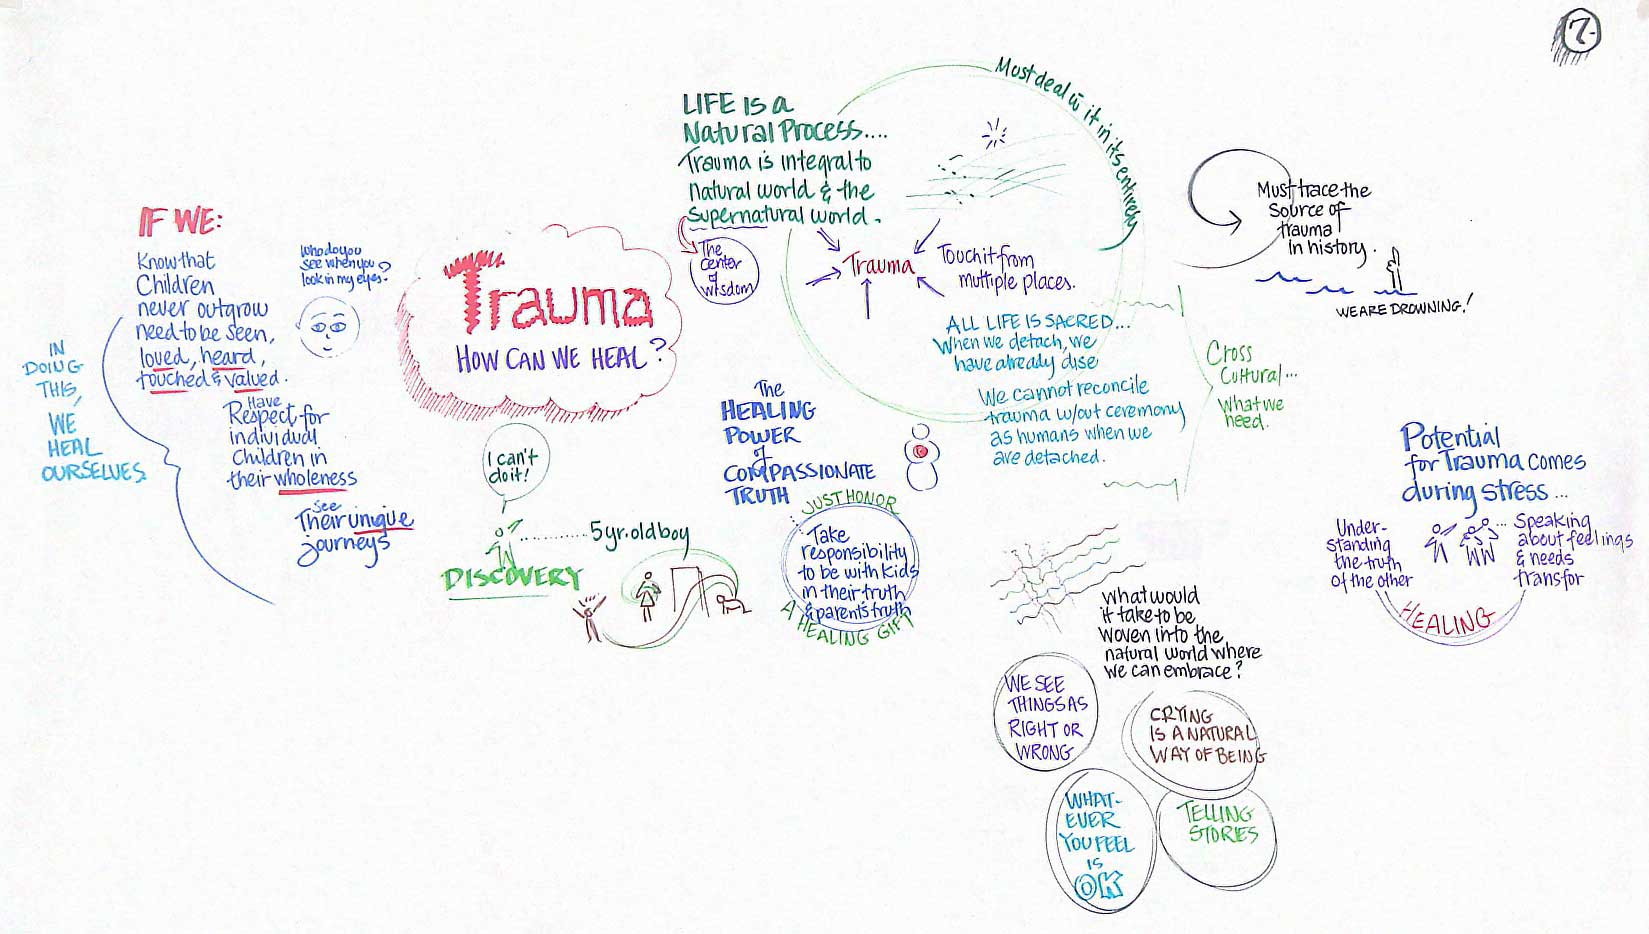 7.
IF WE:
Know that
Children
never outgrow
need to be seen,
loved, heard,
touched & valued.
Have
Respect for
individual
Children in
their wholeness
see
Their unique
journeys
who do you
see when you
look in my eyes?
IN
DOING
THIS,
WE
HEAL
OURSELVES.
Trauma
HOW CAN WE HEAL?
LIFE IS a
Natural Process....
Trauma is integral to
natural world & the
supernatural world.
The
center
of
wisdom
Must deal w̄ it in its entirety
Trauma
Touch it from
multiple places.
ALL LIFE IS SACRED...
When we detach, we
have already dise
We cannot reconcile
trauma w/out ceremony
as humans when we
are detached.
Cross
Cultural...
What we
need.
Must trace the
Source of
trauma
in history.
WE ARE DROWNING!
I can't
do it!
5 yr. old boy
DISCOVERY
The
HEALING
POWER
of
COMPASSIONATE
TRUTH
JUST HONOR
Take
responsibility
to be with kids
in their truth
& parents truth
A HEALING GIFT
what would
it take to be
woven into the
natural world where
we can embrace?
WE SEE
THINGS AS
RIGHT OR
WRONG
CRYING
IS A NATURAL
WAY OF BEING
WHAT-
EVER
YOU FEEL
IS
OK
TELLING
STORIES
Potential
for Trauma comes
during stress...
Under-
standing
the truth
of the other
... Speaking
about feelings
& needs
transfor
HEALING